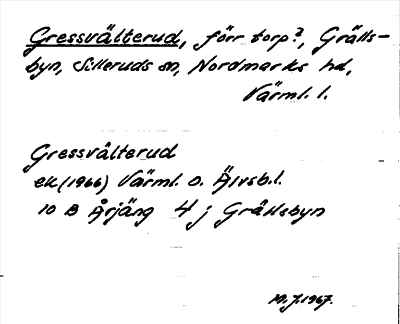 Gressvälterud, förr torp?, Grälls-
byn, Silleruds sn, Nordmarks hd,
Värml. l.
Gressvålterud
ek (1966) Värml. o. Älvsb. l.
10 B Årjäng 4 j Grällsbyn
M. J. 1967.